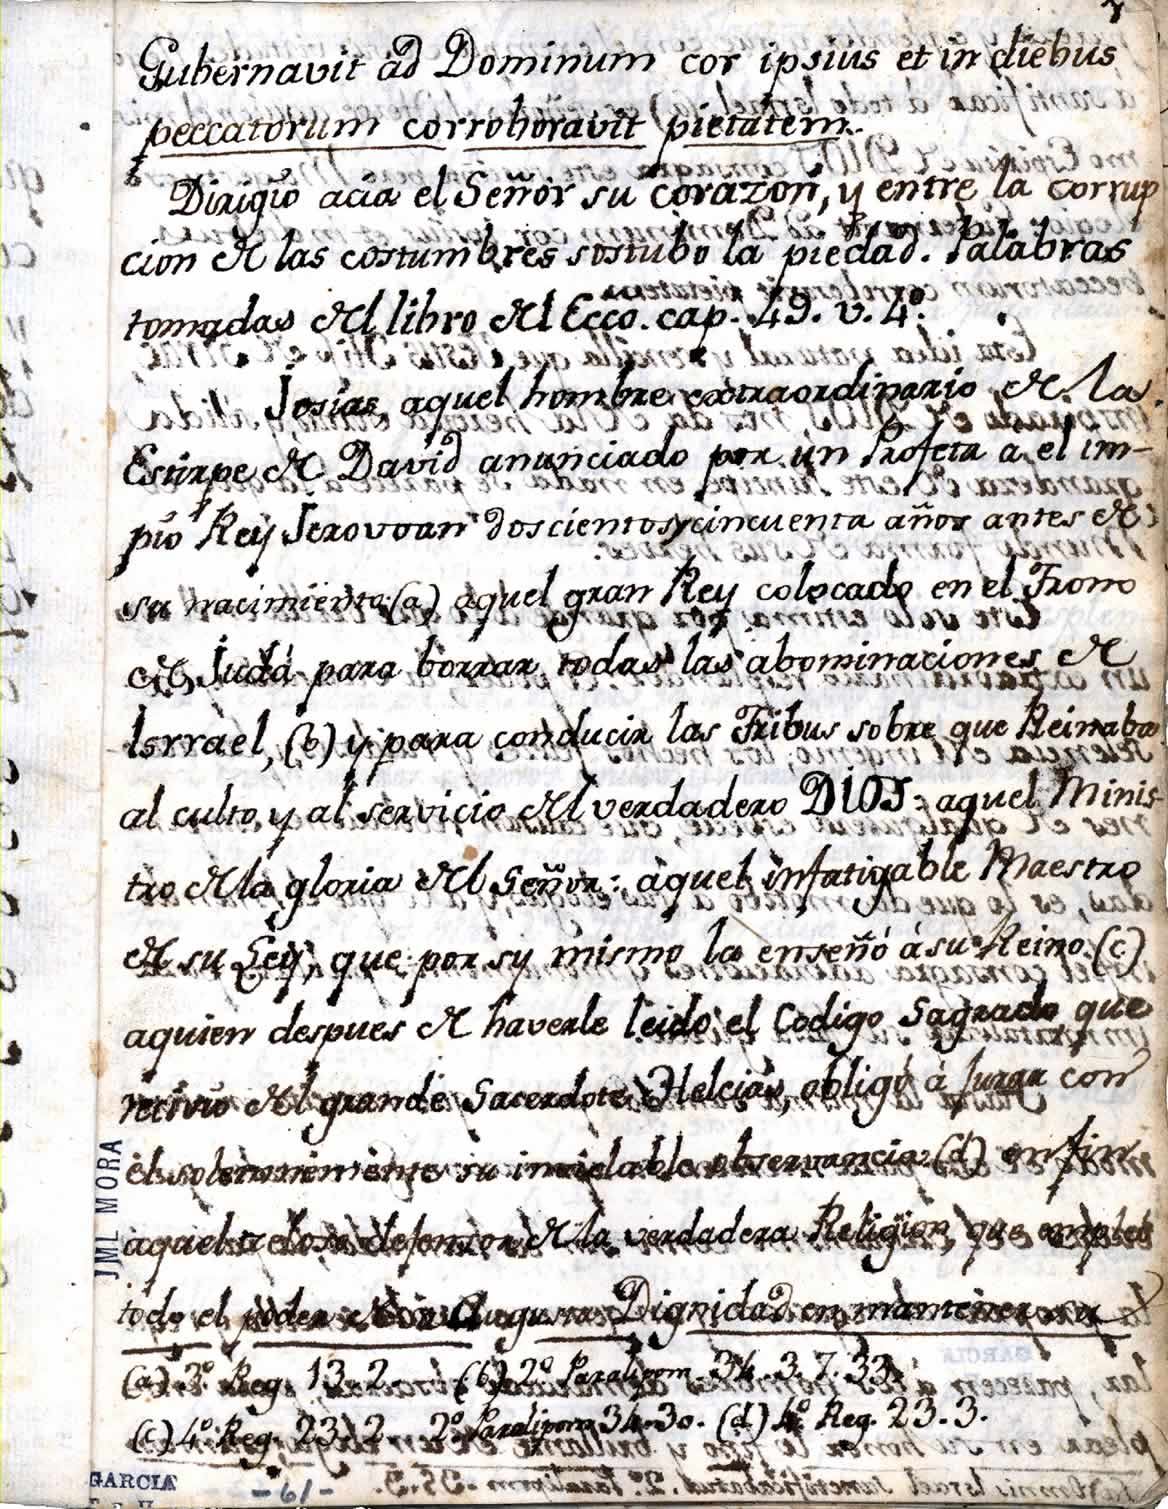 Gubernavit ad Dominum cor ipsius et in diebus
peccatorum corroboravit pietatem.
Dirigió acia el Señor su corazon, y entre la corrup
cion de las costumbres sostubo la piedad. Palabras
tomadas del libro del Ecco. cap. 49. v. 4º.
Josias, aquel hombre extraordinario de la
Estirpe de David anunciado por un Profeta a el im-
pio Rey Jerovoan doscientos y cincuenta años antes de
su nacimiento (a) aquel gran Rey colocado en el Trono
de Judá para borrar todas las abominaciones de
Isrrael, (b) y para conducir las Tribus sobre que Reinaba
al culto y al servicio del verdadero DIOS: aquel Minis-
tro de la gloria del Señor: aquel infatigable Maestro
de su Ley, que por sy mismo la enseñó á su Reino (c)
aquien despues de haverle leido el Codigo Sagrado que
recivió del grande Sacerdote Helcias, obligó á Jurar con
él solemnemente su inviolable observancia (d) en fin
aquel zeloso defensor de la verdadera Religion, que empleó
todo el poder de su Augusta Dignidad en mantener su
(a) 3º. Reg. 13. 2. (b) 2º Paralipom. 34. 3. 7. 33.
(c) 4º. Reg. 23. 2. 2º Paralipom. 34. 30. (d) 4º. Reg. 23. 3.
JML MORA
GARCIA
-61-